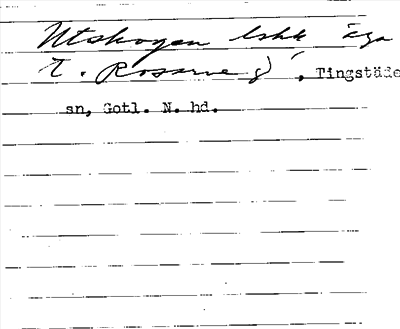 Utskogen lshk äga
t. Rosarve 8', Tingstäde
sn, Gotl. N. hd.